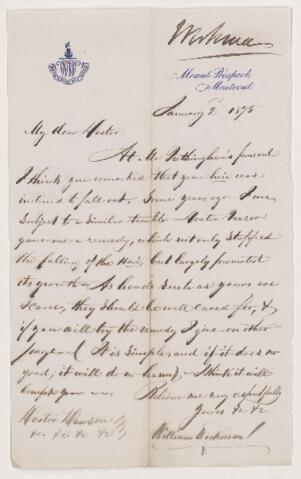 Workman
Mount Prospect,
Montreal
January 2nd 1875
My dear Doctor
At Mr Frothingham's funeral
I think you remarked that your hair was
inclined to fall out. Some years ago I was
subject to a similar trouble Doctor Fraser
gave me a remedy, which not only stopped
the falling of the Hair, but largely promoted
its growth. As heads such as yours are
scarce, they should be well cared for, &
if you will try the remedy I give on other
page. It is simple, and if it does no
good, it will do no harm. I think it will
benefit you
Believe me very respectfully
Yours &c &c
William Workman
Doctor Dawson
&c. &c &c &c